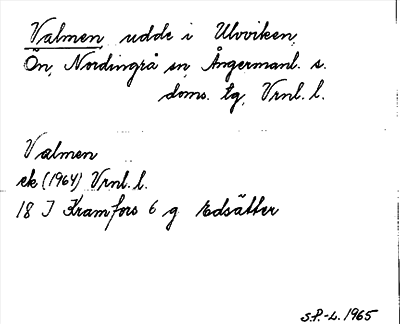 Valmen, udde i Ulvviken,
Ön, Nordingrå sn, Ångermanl. s.
doms. tg, Vrnl. l.
Valmen
ek (1964) Vrnl. l.
18 I Kramfors 6 g Edsätter
S.P.-L. 1965